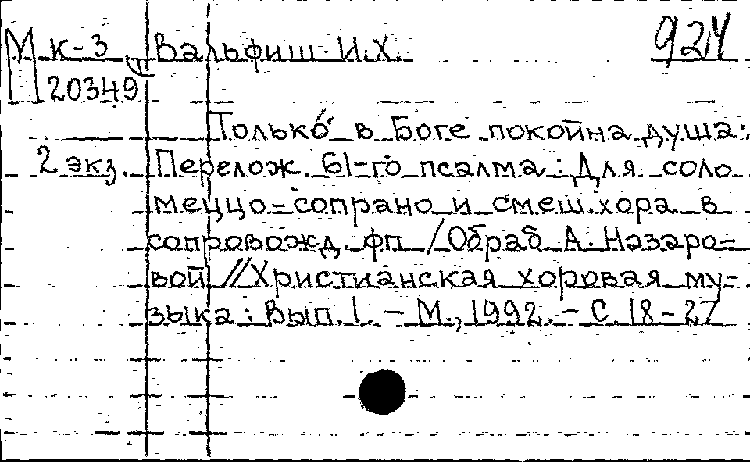 М к-3 Вальфиш И.Х. 924
П 20349
Только в Боге покойна душа:
2 экз. Перелож. 61-го псалма: Для соло
меццо-сопрано и смеш. хора в
сопровожд. фп. / Обраб А. Назаро-
вой // Христианская хоровая му-
зыка: Вып. 1. – М., 1992. – С. 18-27